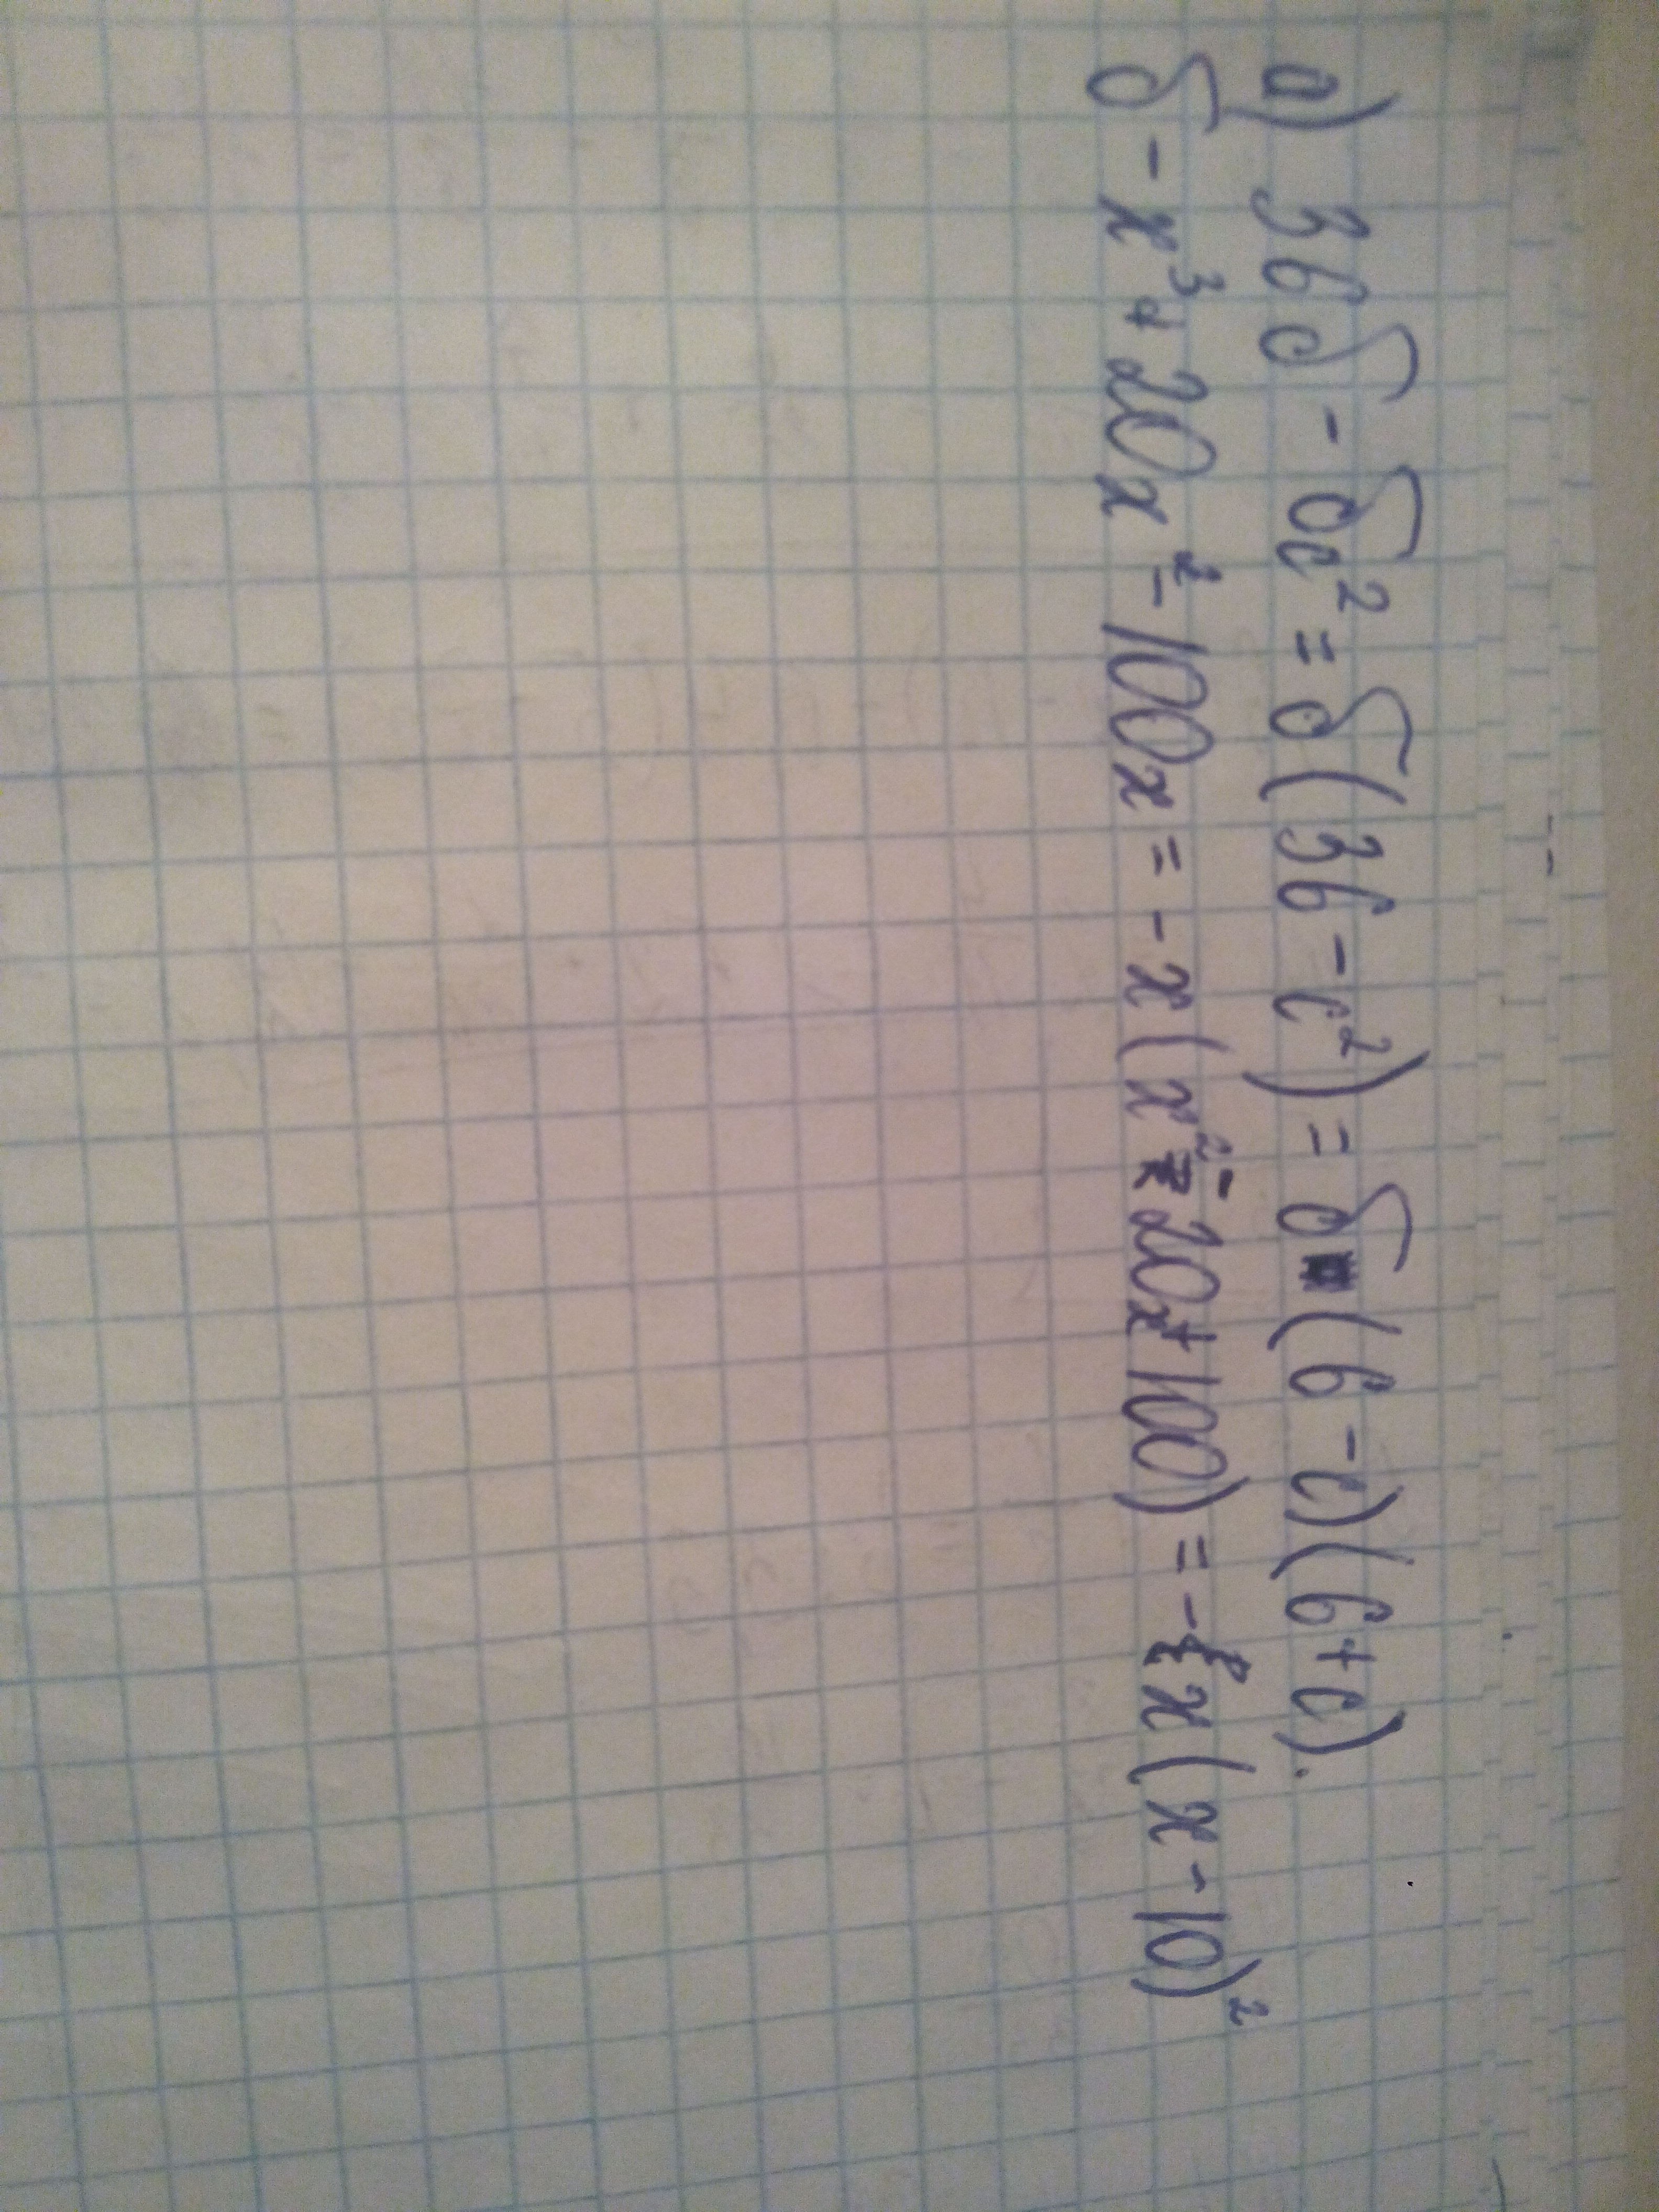 а) 36б - бc² = б(36 - c²) = б(6 - c)(6 + c).
б - x³ + 20x² - 100x = - x(x² - 20x + 100) = - x(x - 10)²